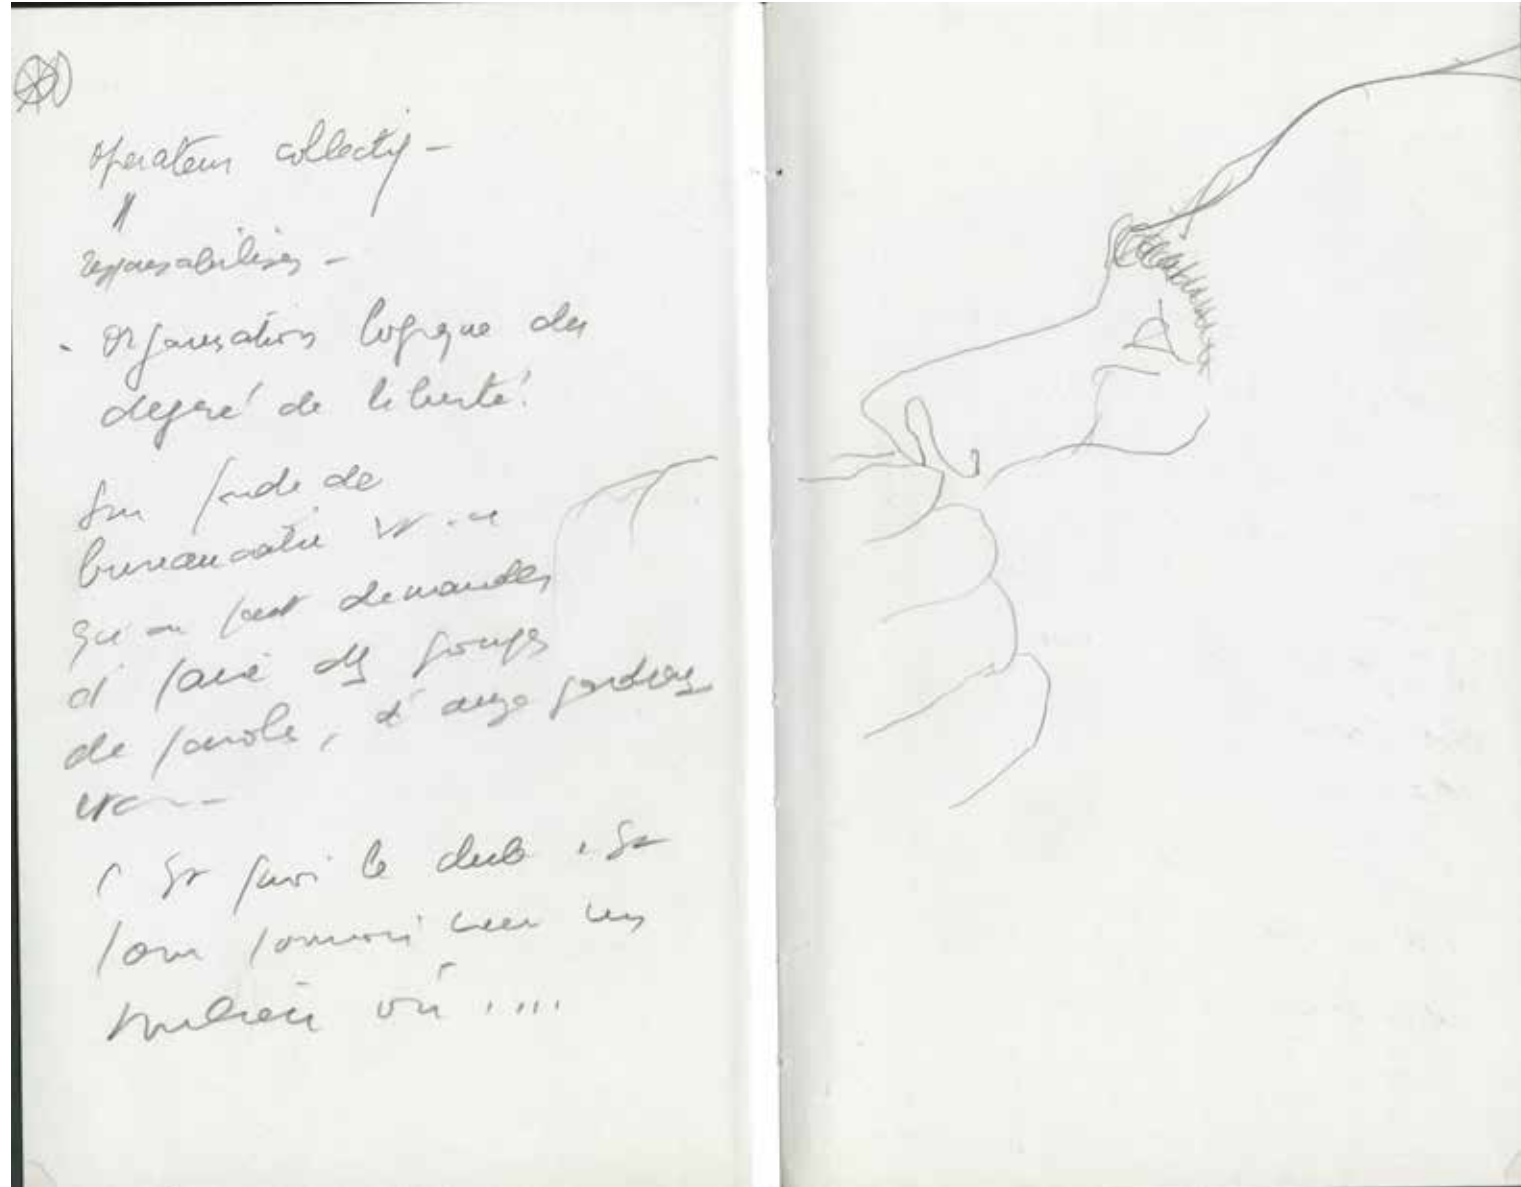 opérateur collectif -
responsabilités -
- organisation logique des
degré de liberté.
Sur fond de
bureaucratie
qu'on peut demander
d' faire des groupes
de parole, d'ange gardiens
etc---
le club
pour pouvoir créer un
milieu où .....